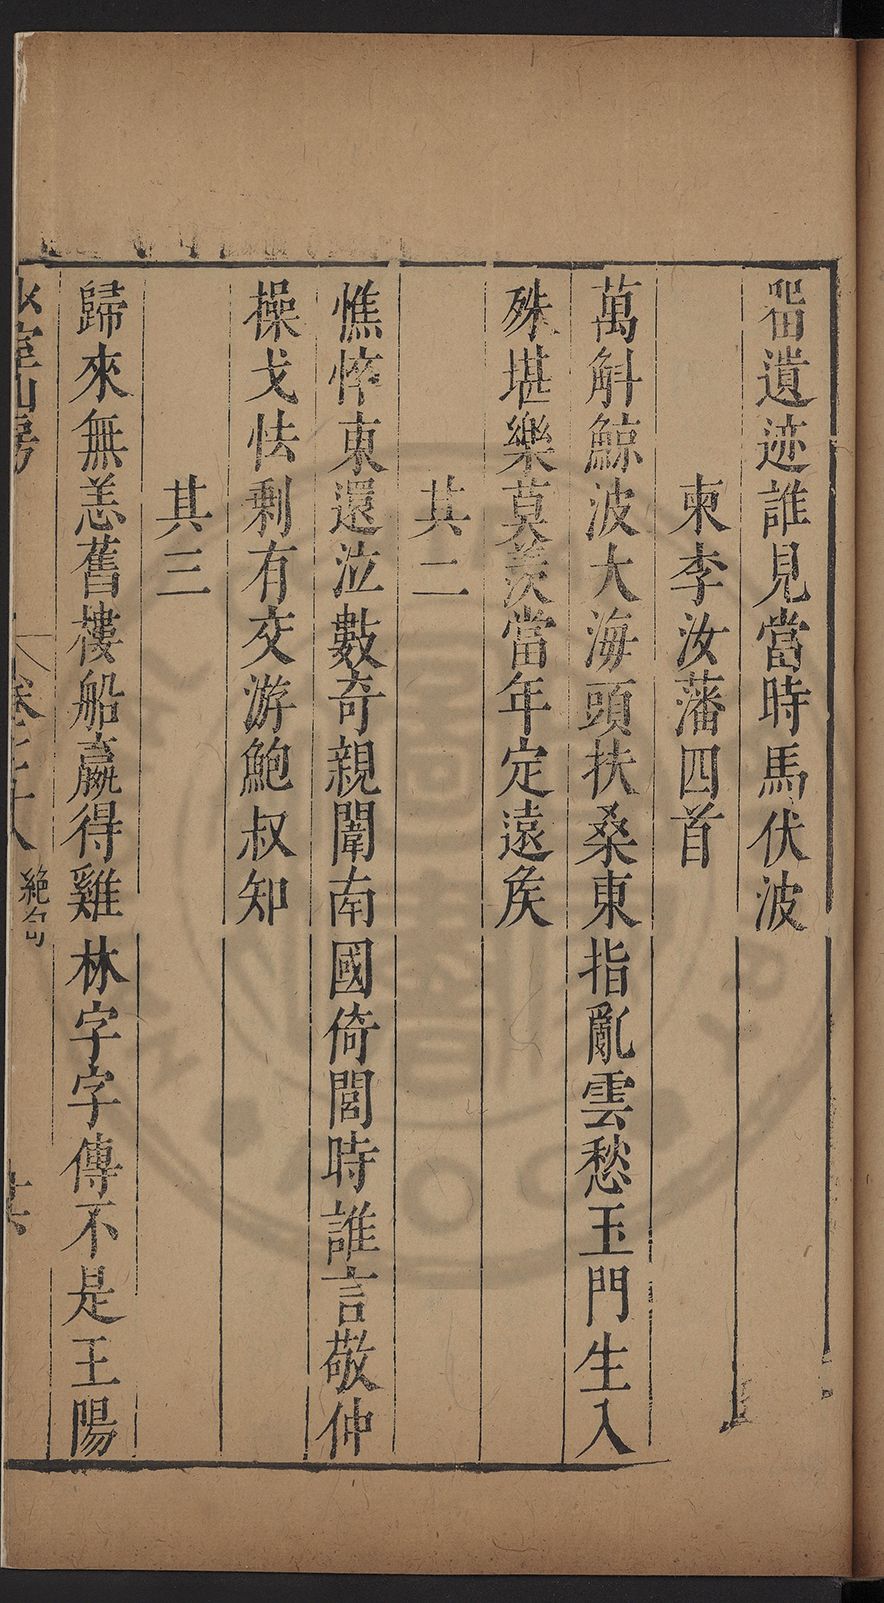 畱遺迹誰見當時馬伏波
柬李汝藩四首
萬斛鯨波大海頭扶桑東指亂雲愁玉門生入
殊堪樂莫羨當年定遠矦
其二
憔悴東還泣數奇親闈南國倚閭時誰言敬仲
操戈怯剩有交游鮑叔知
其三
歸來無恙舊樓船嬴得雞林字字傳不是王陽
絶句